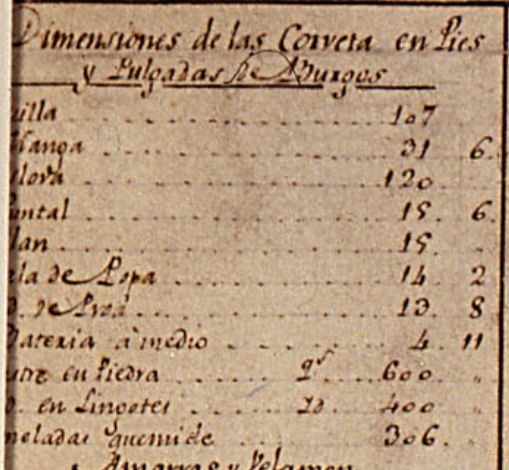 Dimensiones de las Corveta en Pies
y Pulgadas de Burgos
uilla 107
Manga 31 6
slora 120
untal 15 6
lan 15
ela de Popa 14 2
d. de Proa 13 8
Bateria à medio 4 11
astre en Piedra qs 600 "
d. en Lingotes Yd 400 "
neladas quemide 306 "
Amarras y Velamen